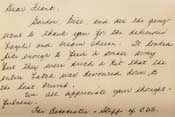 Dear Frank,
Gordon, Bill, and all the gang
want to thank you for the delicious
bagels and cream cheese. It looked
like enough to feed a small army
but they were such a hit that the
entire was devoured down to
the last crumb.
We all appreciate your thought-
fulness.
The Associates & Staff of